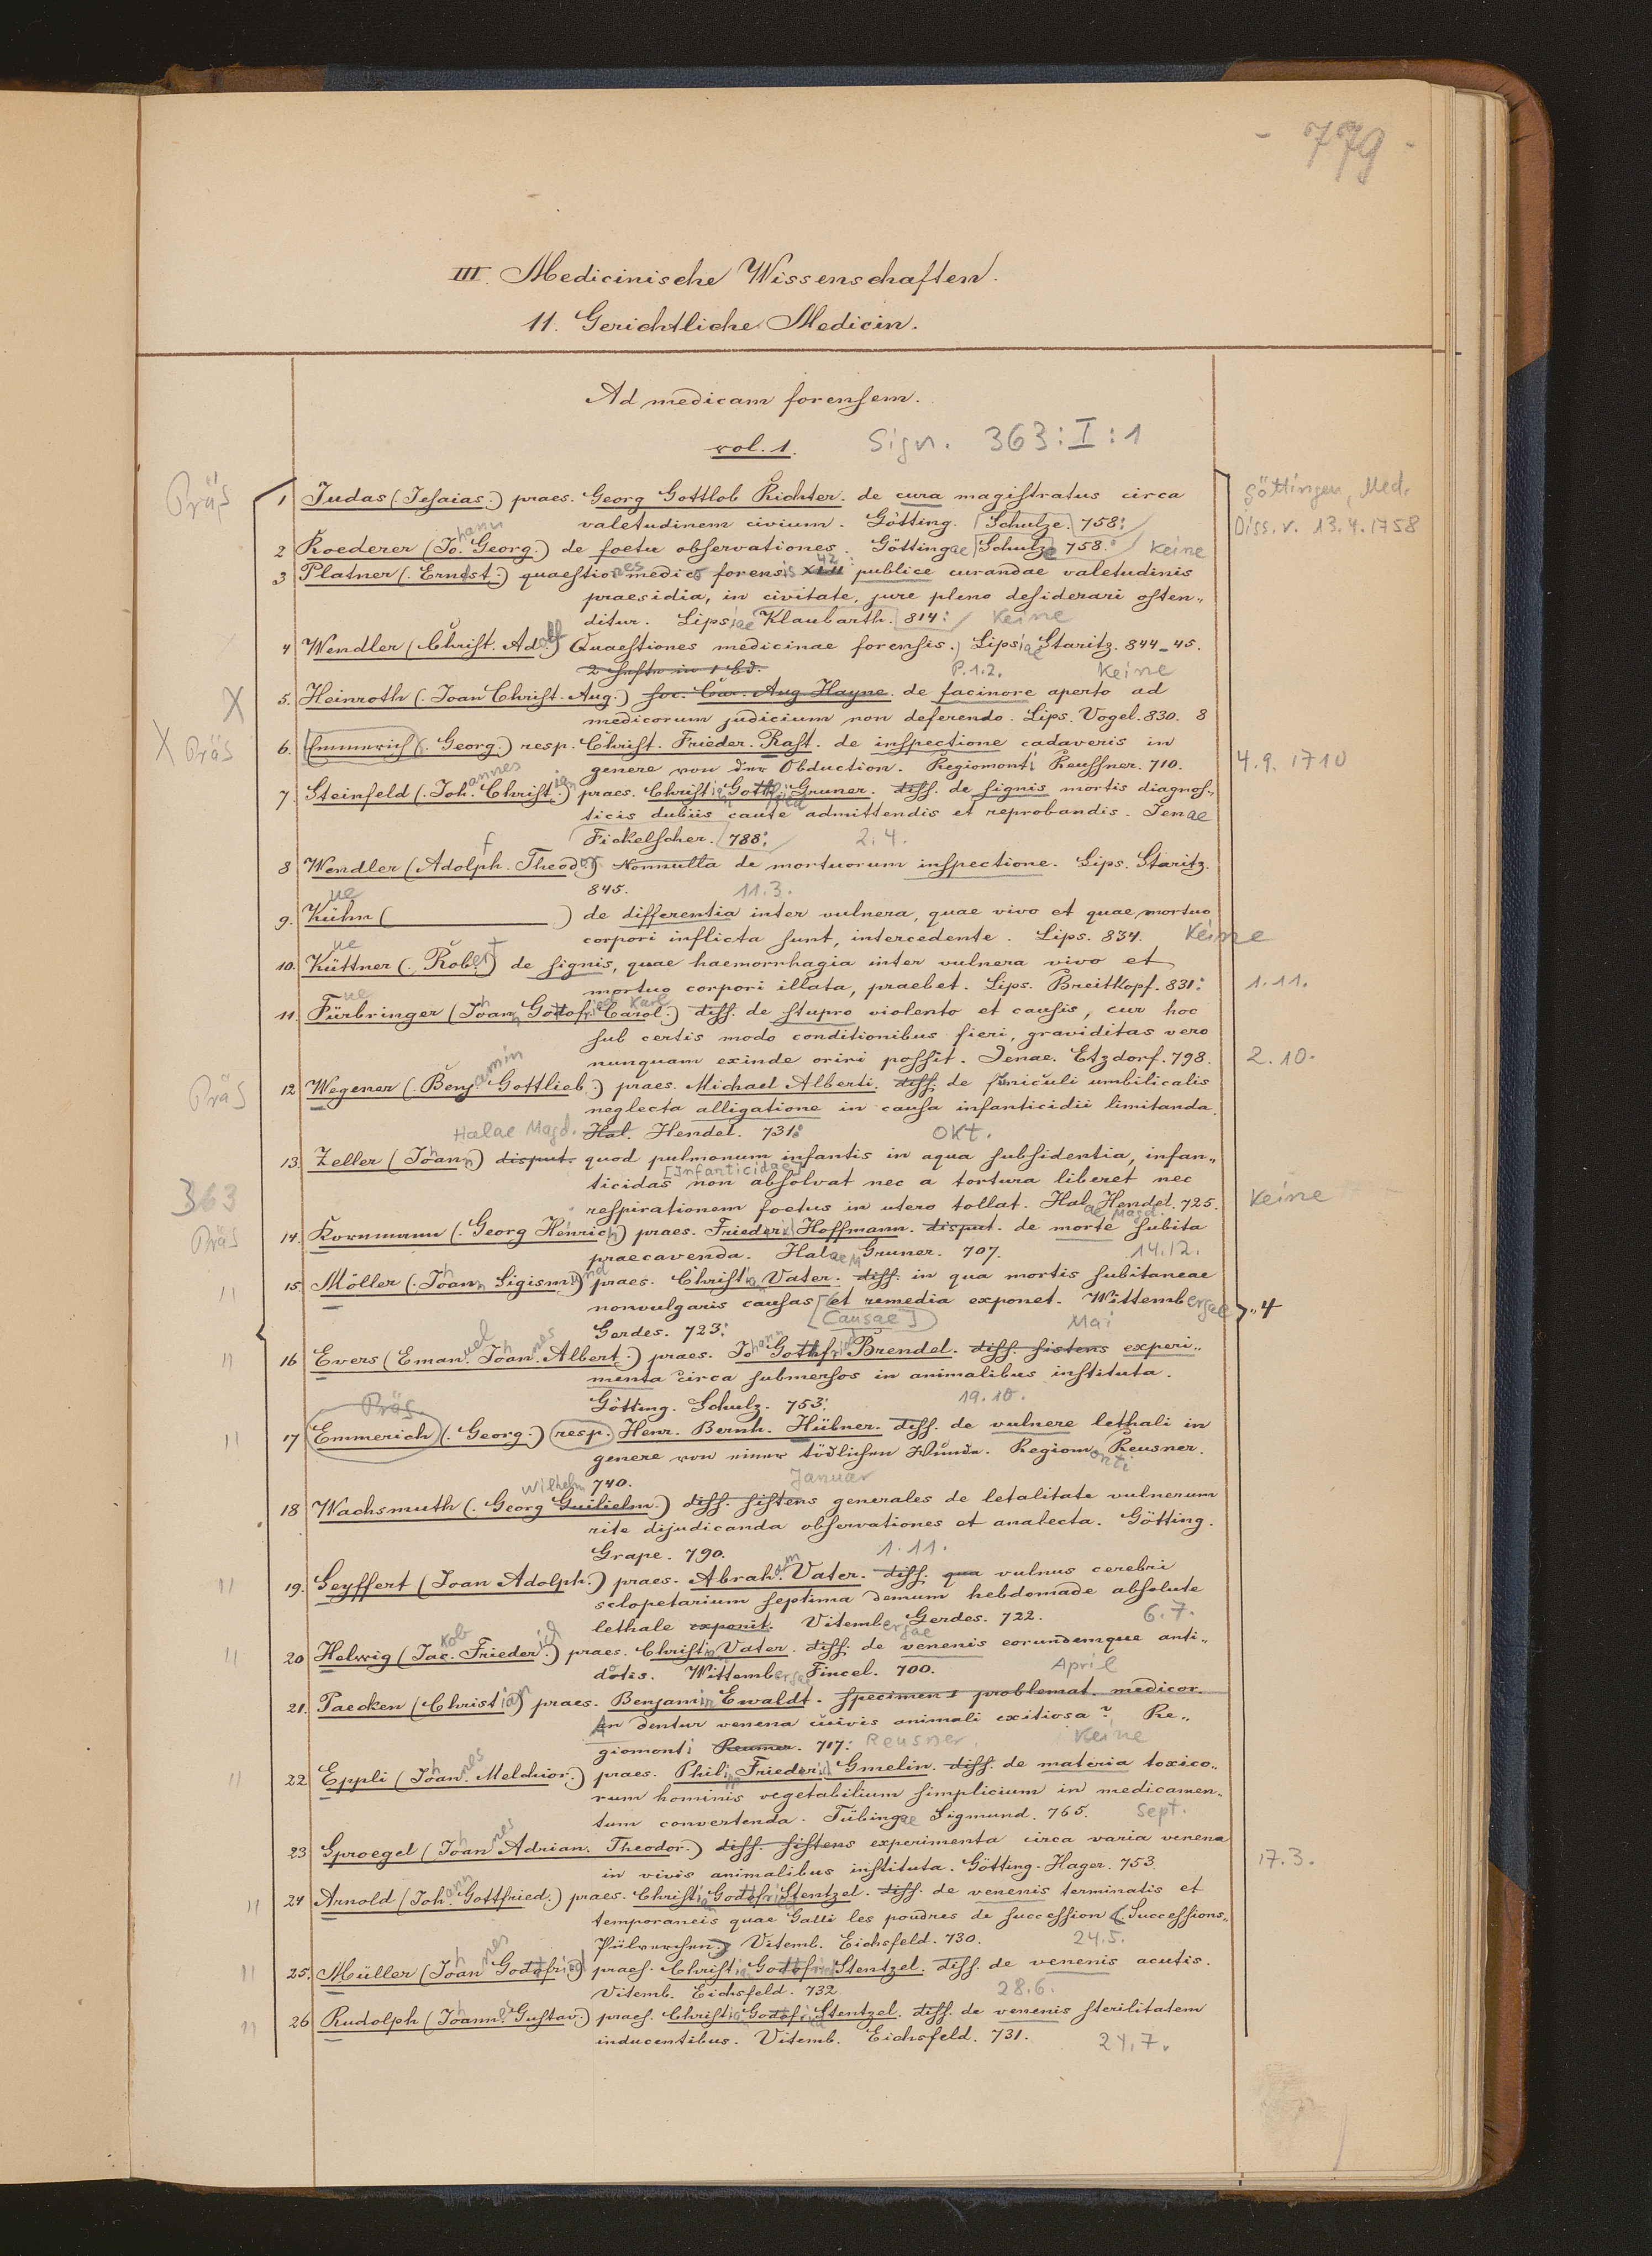 - 779 -
III. Medicinische Wissenschaften.
11. Gerichtliche Medicin.
Ad medicam forensem.
vol. 1. Sign. 363:I:1
Präs 1 Judas (Jesaias.) praes. Georg Gottlob Richter. de cura magistratus circa Göttingen, Med.
valetudinem civium. Götting. [Schulze.] 758: Diss. v. 13.4.1758
2 Roederer (Johann Georg.) de foetu observationes. Göttingae [Schulze] 758. Keine
3 Platner (Ernst.) quaestiones medico forensis 42: publice curandae valetudinis
praesidia, in civitate, jure pleno desiderari osten„
ditur. Lipsiae Klaubarth. 814: Keine
4 Wendler (Christ. Adolf) Quaestiones medicinae forensis. Lipsiae Staritz. 844-45.
2 Hefte in 1 Bd. P.1.2. Keine
X 5. Heinroth (Joan Christ. Aug.) soc. Car. Aug Hayne. de facinore aperto ad
medicorum judicium non deferendo. Lips. Vogel. 830. 8
X Präs 6. Emmerich (Georg.) resp. Christ. Frieder. Rast. de inspectione cadaveris in
genere von der Obduction. Regiomonti Reussner. 710. 4.9.1710
7 Steinfeld (Johannes Christian) praes. Christian Gottfried Gruner. diss. de signis mortis diagnos„
ticis dubiis caute admittendis et reprobandis. Jenae
Fickelscher. 788: 2.4.
8 Wendler (Adolph f Theodor) Nonnulla de mortuorum inspectione. Lips. Staritz.
845. 11.3.
9. Kühn ue ( ) de differentia inter vulnera, quae vivo et quae mortuo
corpori inflicta sunt, intercedente. Lips. 834. Keine
10. Küttner ue (Robert) de signis, quae haemorrhagia inter vulnera vivo et
mortuo corpori illata, praebet. Lips. Breitkopf. 831: 1.11.
11. Fürbringer ue (Johann Gottofried Carol. Karl) diss. de stupro violento et causis, cur hoc
sub certis modo conditionibus fieri, graviditas vero
nunquam exinde oriri possit. Jenae. Etzdorf. 798. 2.10.
Präs 12 Wegener (Benjamin Gottlieb.) praes. Michael Alberti. diss. de funiculi umbilicalis
neglecta alligatione in causa infanticidii limitanda.
Halae Magd. Hal. Hendel. 731: Okt.
13. Zeller (Johann) disput. quod pulmonum infantis in aqua subsidentia, infan„
ticidas [Infanticidae] non absolvat nec a tortura liberet nec
363 respirationem foetus in utero tollat. Halae Magd. Hendel. 725. Keine
Präs 14. Kornmann (Georg Henrich) praes. Friederich Hoffmann. disput. de morte subita
praecavenda. Halae M Gruner. 707. 14.12.
" 15. Möller (Johann Sigismund) praes. Christian Vater. diss. in qua mortis subitaneae
nonvulgaris causas [et remedia exponet. Wittembergae „4
Gerdes. 723: [Causae] Mai
" 16 Evers (Emanuel Johannes Albert.) praes. Johann Gothfried Brendel. diss. sistens experi„
menta circa submersos in animalibus instituta.
Götting. Schulz. 753: 19.10.
Präs.
" 17 Emmerich (Georg.) resp. Henr. Bernh. Hübner. diss. de vulnere lethali in
genere von einer tödlichen Wunde. Regiomonti Reusner.
740. Januar
18 Wachsmuth (Georg Guilielm. Wilhelm) diss. sistens generales de letalitate vulnerum
rite dijudicanda observationes et analecta. Götting.
Grape. 790. 1.11.
" 19. Seyffert (Joan Adolph.) praes. Abraham Vater. diss. qua vulnus cerebri
sclopetarium septima demum hebdomade absolute
lethale exponit. Vitembergae Gerdes. 722. 6.7.
" 20 Helwig (Jac. kob Friederich) praes. Christian Vater. diss. de venenis eorundemque anti„
dotis. Wittembergae Fincel. 700. April
21. Paecken (Christian) praes. Benjamin Ewaldt. Specimen I problemat. medicor.
An dentur venena cuivis animali exitiosa? Re„
giomonti Reumer. 717: Reusner. Keine
" 22 Eppli (Johannes Melchior.) praes. Philipp Friederich Gmelin. diss. de materia toxico„
rum hominis vegetabilium simplicium in medicamen„
tum convertenda. Tübingae Sigmund. 765. Sept.
23 Sproegel (Johannes Adrian. Theodor.) diss. sistens experimenta circa varia venena
in vivis animalibus instituta. Götting. Hager. 753. 17.3.
" 24 Arnold (Johann Gottfried.) praes. Christian Godofried Stentzel. diss. de venenis terminatis et
temporaneis quae Galli les poudres de succession (Successions„
Pülverchen) Vitemb. Eichsfeld. 730. 24.5.
" 25. Müller (Johannes Godofried) praes. Christian Godofried Stentzel. diss. de venenis acutis.
Vitemb. Eichsfeld. 732. 28.6.
" 26 Rudolph (Johannes Gustav.) praes. Christian Godofried Stentzel. diss. de venenis sterilitatem
inducentibus. Vitemb. Eichsfeld. 731. 24.7.